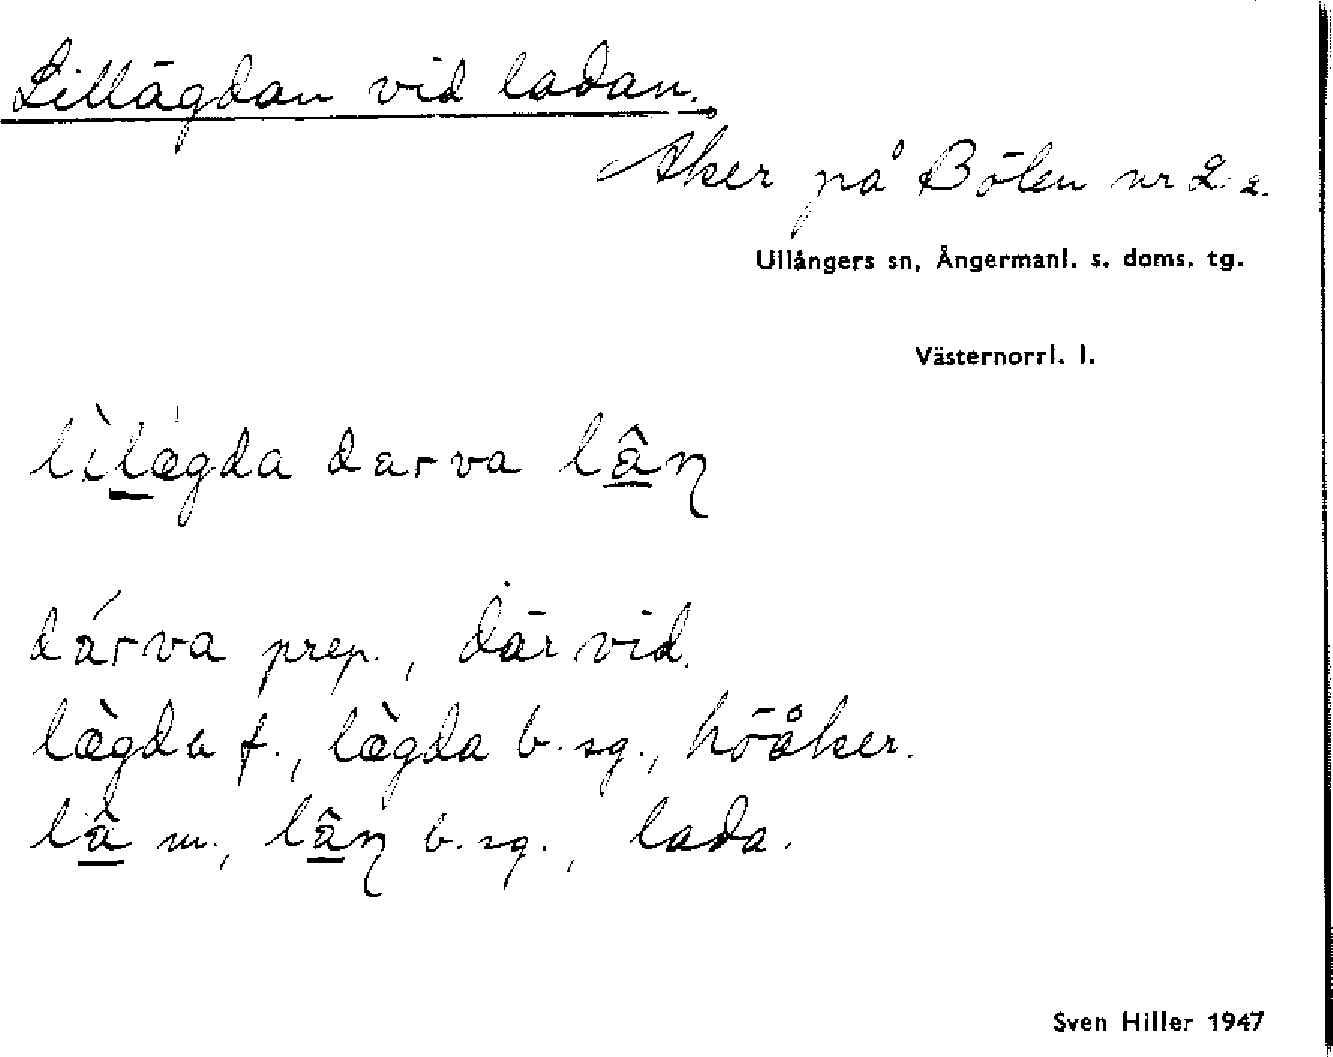 Lillägdan vid ladan.
Åker på Bölen nr 2:2.
Ullångers sn, Ångermanl. s. doms. tg.
Västernorrl. l.
lìlægda darva lâ̱ꞑ
dárva prep., där vid.
lægda f., lægda b. sg., höåker.
lâ̱ m., lâ̱ꞑ b. sg., lada.
Sven Hiller 1947